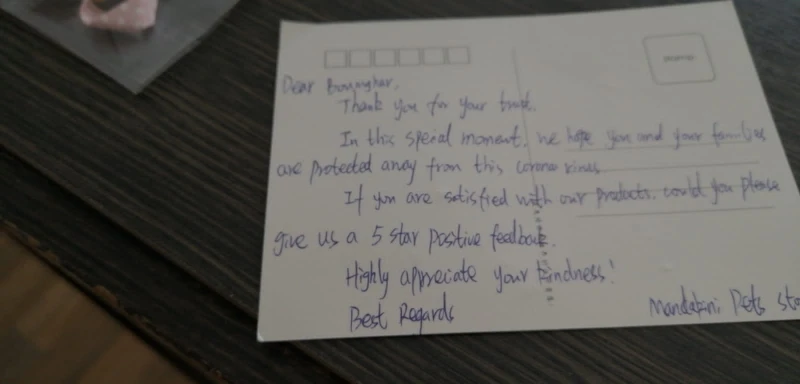 Dear
Thank you for your trust.
In this special moment, we hope you and your families
are protected away from this corona virus
If you are satisfied with our products, could you please
give us a 5 star positive feedback.
Highly appreciate your kindness!
Best Regards
Pets